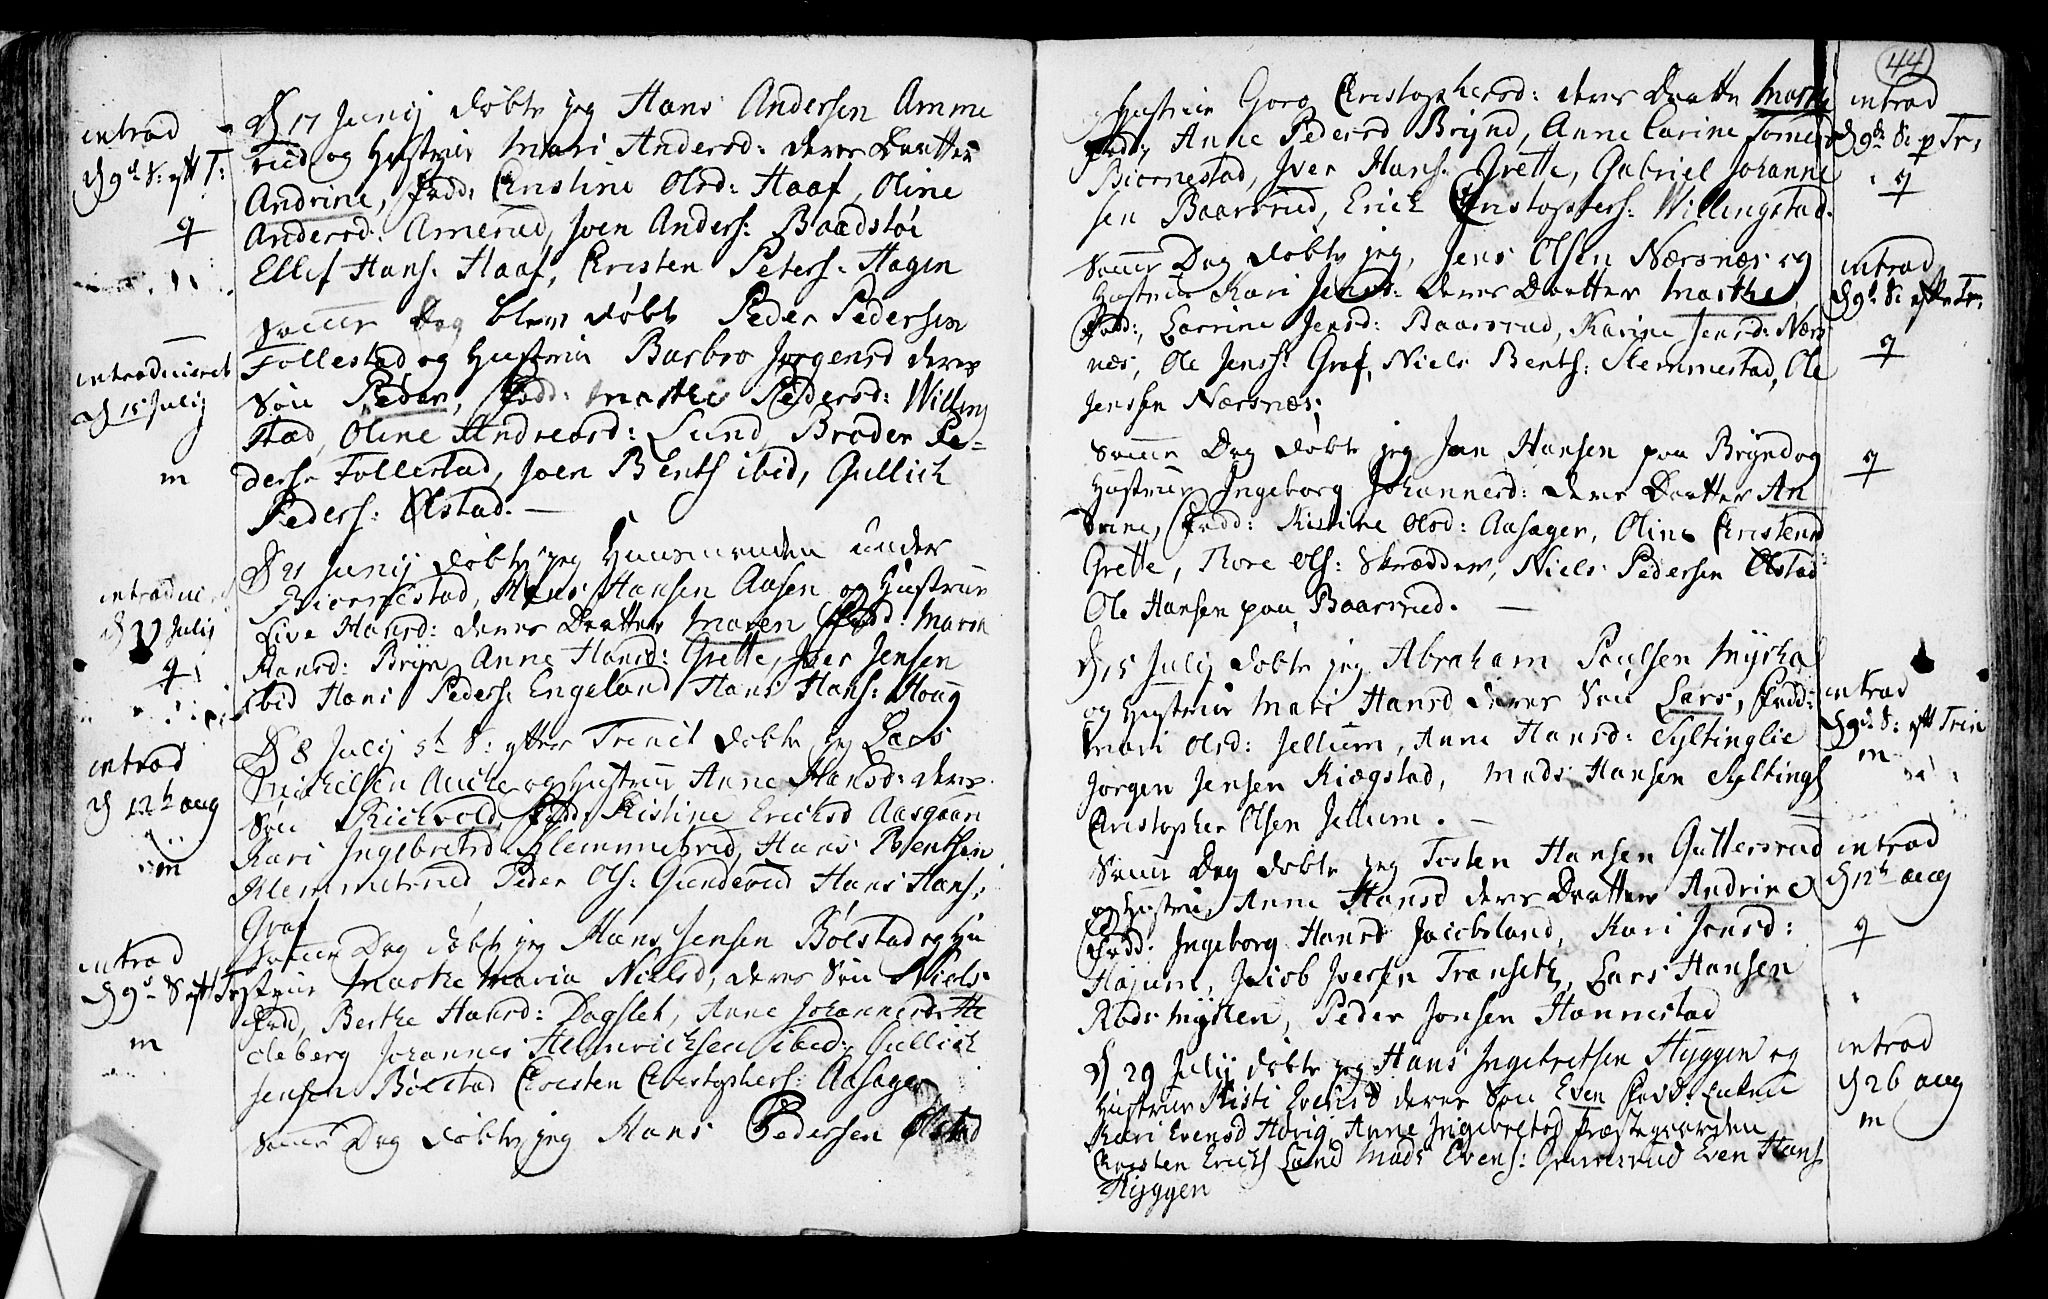 introd
d 9de S: eftr T:
q
introduceret
d 15 Julij
m
introduc
d Julij
q
introd
d 12te aug
m
introd
d 9de S eftr Tr
m
D 17 Junij døbte jeg Hans Andersen Amme
rud og Hustrue Mari Andersd: deres Daatter
Andrine, Fadd: Christine Olsd: Haaf, Oline
Andersd: Amerud, Joen Anders: Baadstøe
Ellef Hans: Haaf, Christen Peters: Hagen
Samme Dag blev døbt Peder Pedersen
Follestad og Hustrue Barbro Jørgensd deres
Søn Peder, Fadd: Marthe Pedersd: Willing
stad, Oline Andreasd: Lund, Broder Pe=
ders: Follestad, Joen Bents ibid, Gullich
Peders: Ølstad. —
D 21 Junij døbte jeg Huusmanden under
Biørnestad, Hans Hansen Aasen og Hustrue
Live Hansd: deres Daatter Maren Fadd: Maren
Hansd: Bryn, Anne Hansd: Grette, Iver Jensen
ibid Hans Peders: Engelund Hans Hans: Houg
D 8 Julij 5te S: efter Trinit døbte jeg Lars
Michelsen og Hustrue Anne Hansd: deres
Søn Richvold, Fadd: Kistine Ericksd Aasgaar
Kari Ingebretsd Klemmetsrud, Hans Bentsen
Klemmetsrud Peder Ols: Gunderud Hans Hans:
Graf
Samme Dag døbte jeg Hans Jensen Bølstad og Hu
strue Marthe Maria Nielsd, deres Søn Niels
Fadd, Berthe Hansd: Dagslet, Anne Johannesd: He
cleberg Johannes Helmrichsen ibid: Gullich
Jensen Bølstad Christen Christophers: Aasager
Samme Dag døbte jeg Hans Pedersen Ølstad
44
Hustrue Goro Christophersd: deres Daatter Marthe
Fadd: Anne Pedersd Brynd, Anne Carine Tomesd
Biørnestad, Iver Hans: Grette, Gabriel Johanne
sen Baarsrud, Erich Christophers: Willingstad.
Samme Dag døbte jeg, Jens Olsen Nærsnæs og
Hustrue Kari Jensd: deres Daatter Marthe,
Fadd:, Larrine Jensd: Baarsrud, Karine Jensd: Nærs
næs, Ole Jenss: Graf, Niels Bents: Slemmestad, Ole
Jensen Nærsnæs:
Samme Dag døbte jeg Jan Hansen paa Brynd og
Hustrue Ingeborg Johannesd: deres Daatter An
drine, Fadd: Kistine Olsd: Aasager, Oline Christensd
Grette, Thore Ols: Skrædder, Niels Pedersen Ølstad
Ole Hansen paa Baarsrud. —
D, 15 Julij døbte jeg Abraham Poulsen Myhra
og Hustrue Mari Hansd deres Søn Lars, Fadd:
Mari Olsd: Jellum, Anne Hansd: Syltinglie
Jørgen Jensen Kiægstad, Mads Hansen Syltingl
Christopher Olsen Jellum. —
Samme Dag døbte jeg Tosten Hansen Guttersrud
og Hustrue, Anne Hansd deres Daatter Andrine
Fadd: Ingeborg Hansd Jacobsland, Kari Jonsd:
Højum, Jacob Iversen Transeth, Lars Hansen
Rødsmysten, Peder Jonsen Hannestad
D 29 Julij døbte jeg Hans Ingebretsen Hyggen og
Hustrue Kisti Evensd deres Søn Even Fadd: Enken
Kari Evensd Hørig, Anne Ingebretsd Præstegaarden
Christen Erichs Lund Mads Evens: Even Hans
Hyggen
introd
d 9de S: p Tr:
q
introd
d 9de S: efter Tr:
q
q
introd
d 9de S: eftr Trin
m
introd
d 12te aug
q
introd
d 26 aug
m